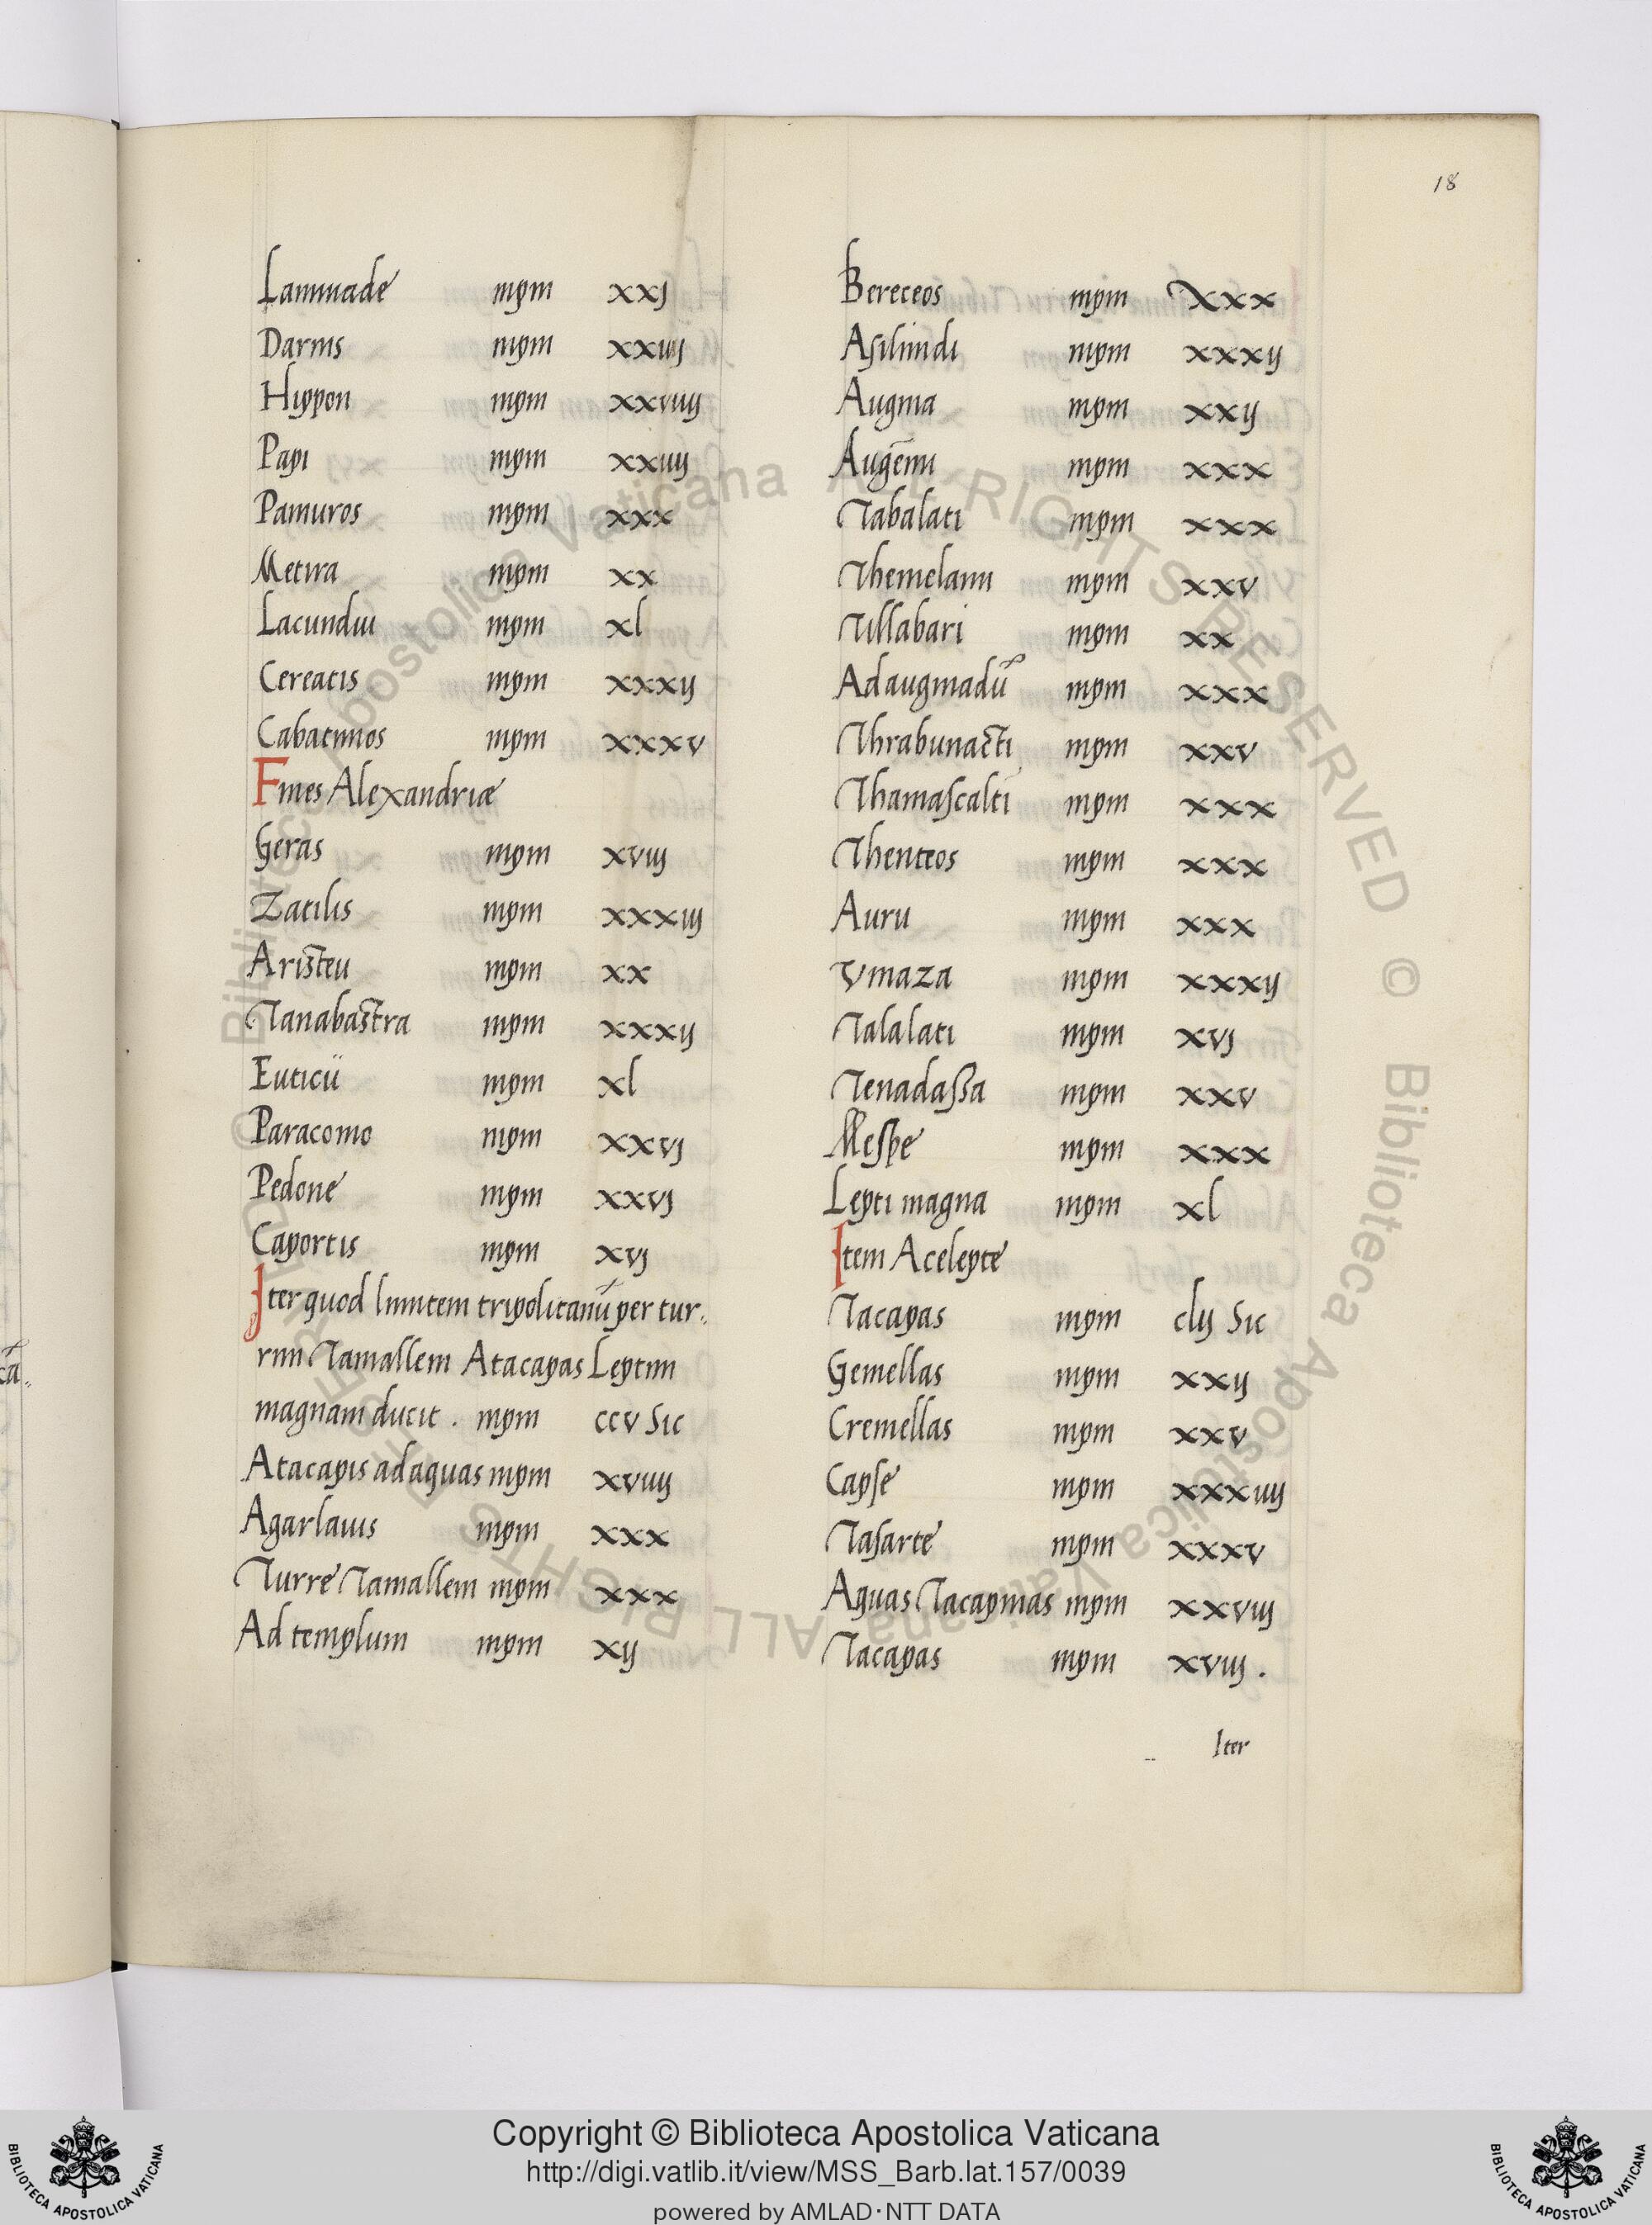 18
Laminade mpm xxj
Darnis mpm xxiiij
Hippon mpm xxviiij
Papi mpm xxiiij
Pamuros mpm xxx
Metira mpm xx
Lacundiu mpm xl
Cereatis mpm xxxij
Cabatinios mpm xxxv
Fines Alexandriæ
Geras mpm xviij
Zatilis mpm xxxiij
Aristeu mpm xx
Tanabastra mpm xxxij
Euticü mpm xl
Paracomo mpm xxvj
Pedone mpm xxvj
Caportis mpm xvj
Iter quod limitem tripolitanū per tur
rim Tamallem Atacapas Leptim
magnam ducit . mpm ccv Sic
Atacapis adaquas mpm xviiij
Agarlauis mpm xxx
Turre Tamallem mpm xxx
Ad templum mpm xij
Bereceos mpm xxx
Asilimdi mpm xxxij
Augma mpm xxij
Augēmi mpm xxx
Tabalati mpm xxx
Themelami mpm xxv
Tillabari mpm xx
Adaugmadū mpm xxx
Thrabunacti mpm xxv
Thamascalti mpm xxx
Thenteos mpm xxx
Auru mpm xxx
Vinaza mpm xxxij
Talalati mpm xvj
Tenadassa mpm xxv
Mespe mpm xxx
Lepti magna mpm xl
Item Acelepte
Tacapas mpm clij Sic
Gemellas mpm xxij
Cremellas mpm xxv
Capse mpm xxxiiij
Tasarte mpm xxxv
Aquas Tacapinas mpm xxviij
Tacapas mpm xviij .
Iter
Copyright © Biblioteca Apostolica Vaticana
http://digi.vatlib.it/view/MSS_Barb.lat.157/0039
powered by AMLAD·NTT DATA